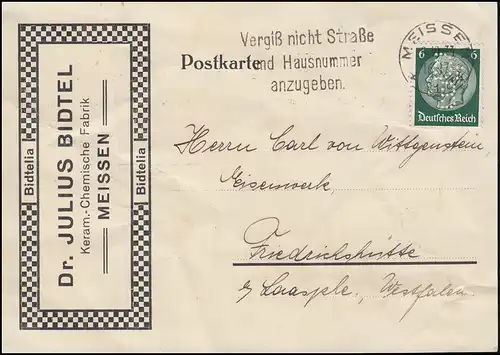 Bidtelia
Dr. JULIUS BIDTEL
Keram.-Chemische Fabrik
MEISSEN
Bidtelia
Vergiß nicht Straße
und Hausnummer
anzugeben.
Postkarte
MEISSE
6 6
Deutsches Reich
Herrn Carl von Wittgenstein,
Eisenwerk,
Friedrichshütte
b/ Laasphe, Westfalen.